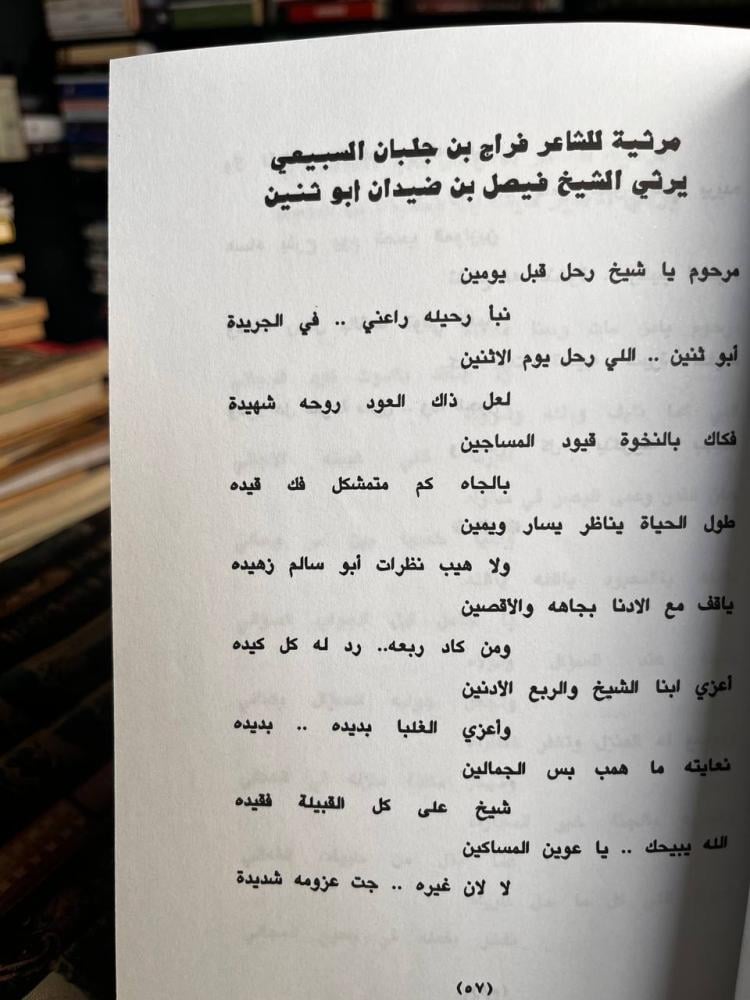 مرثية للشاعر فراج بن جلبان السبيعي
يرثي الشيخ فيصل بن ضيدان ابو ثنين
مرحوم يا شيخ رحل قبل يومين
نبأ رحيله راعني .. في الجريدة
أبو ثنين .. اللي رحل يوم الاثنين
لعل ذاك العود روحه شهيدة
فكاك بالنخوة قيود المساجين
بالجاه كم متمشكل فك قيده
طول الحياة يناظر يسار ويمين
ولا هيب نظرات أبو سالم زهيده
ياقف مع الادنا بجاهه والأقصين
ومن كاد ربعه.. رد له كل كيده
أعزي ابنا الشيخ والربع الأدنين
وأعزي الغلبا بديده .. بديده
نعايته ما همب بس الجمالين
شيخ على كل القبيلة فقيده
الله يبيحك .. يا عوين المساكين
لا لان غيره .. جت عزومه شديدة
(٥٧)